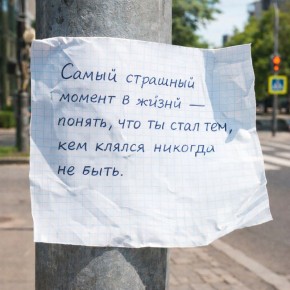 Самый страшный
момент в жизни —
понять, что ты стал тем,
кем клялся никогда
не быть.